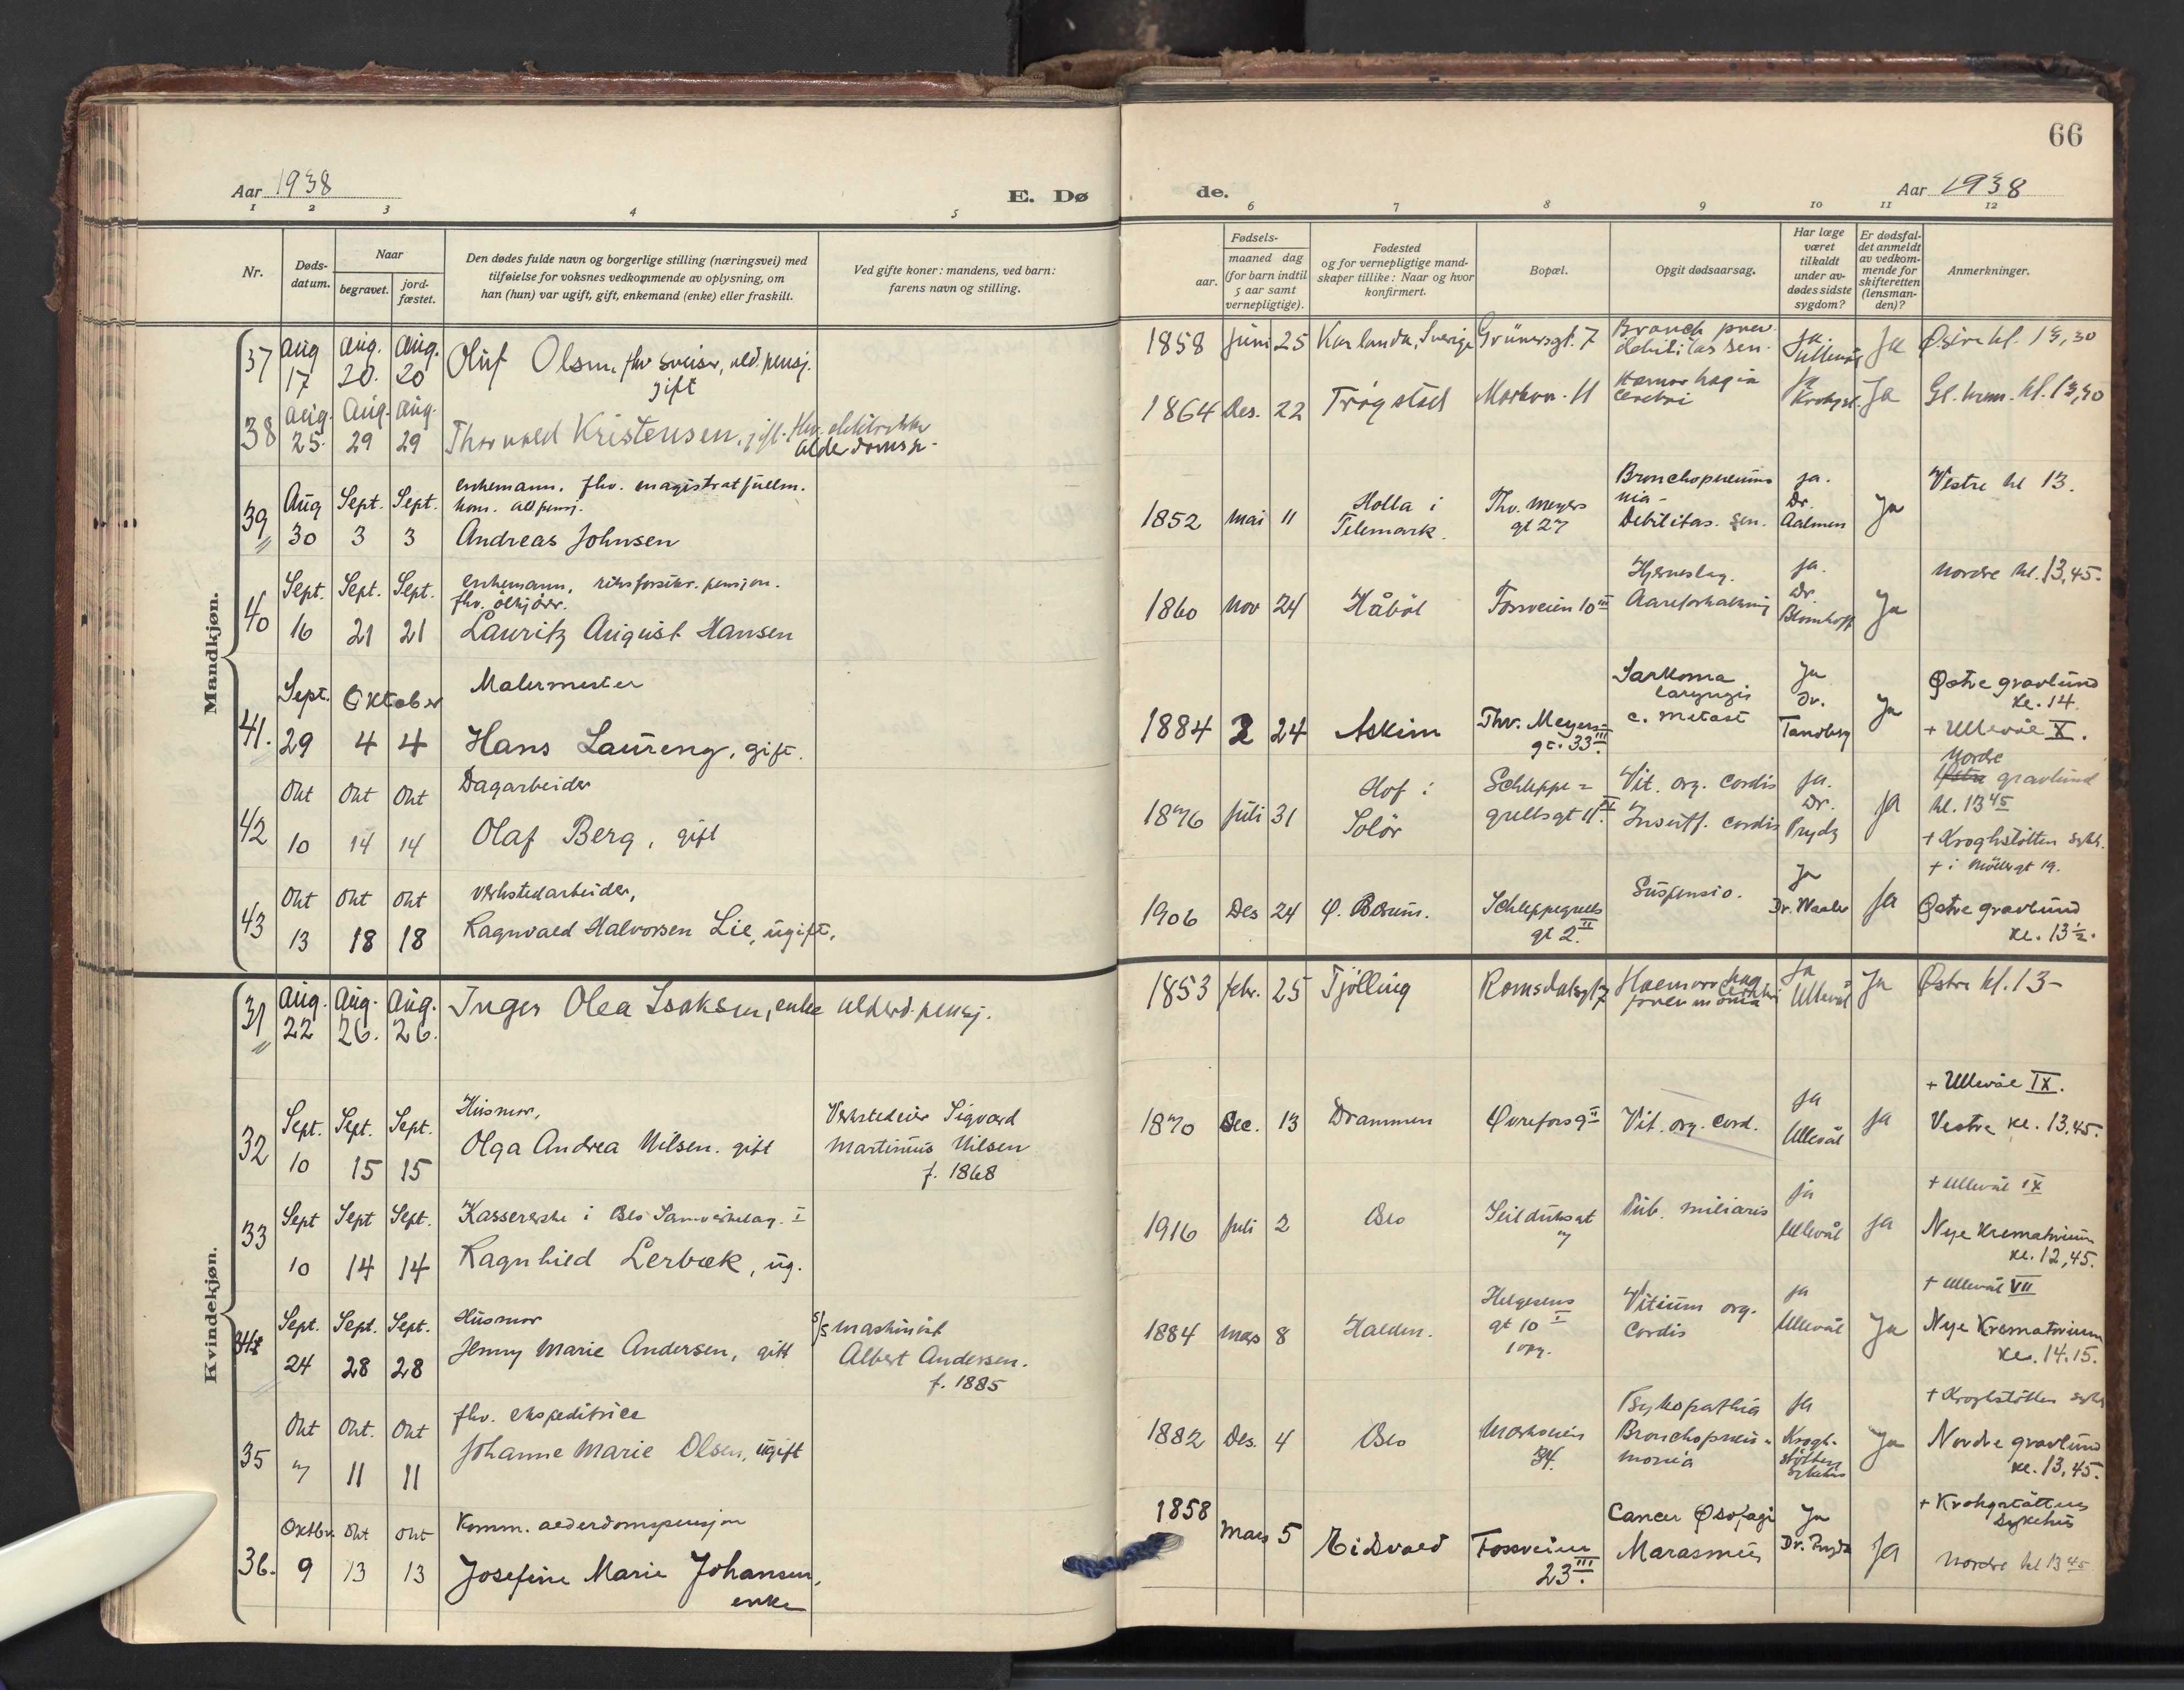 66
Aar 1938
E. Dø
de.
Aar 1938
1 2 3 4 5 6 7 8 9 10 11 12
Nr.
Døds-
datum.
Naar
begravet.
jord-
fæstet.
Den dødes fulde navn og borgerlige stilling (næringsvei) med
tilføielse for voksnes vedkommende av oplysning, om
han (hun) var ugift, gift, enkemand (enke) eller fraskilt.
Ved gifte koner: mandens, ved barn:
farens navn og stilling.
Fødsels-
aar.
maaned dag
(for barn indtil
5 aar samt
vernepligtige).
Fødested
og for vernepligtige mand-
skaper tillike: Naar og hvor
konfirmert.
Bopæl.
Opgit dødsaarsag.
Har læge
været
tilkaldt
under av-
dødes sidste
sygdom?
Er dødsfal-
det anmeldt
av vedkom-
mende for
skifteretten
(lensman-
den)?
Anmerkninger.
Mandkjøn.
37 Aug 17 Aug. 20. Aug. 20 Oluf Olsen, fhv sveiser, ald. pensj.
gift
1858 Juni 25 Karlanda, Sverige Grünersgt. 7 Bronch pneu.
debilitas sen. Ja. Ullevål Ja Østre kl. 13,30
38 Aug. 25. Aug. 29 Aug. 29 Thorvald Kristensen, gift. fhv. elektrikker
alderdomsp.
1864 Des. 22 Trøgstad Markvn. 11 Hæmorhagia
cerebri Ja Krohgst. Ja Gl. krem. kl. 13,30
39 Aug 30 Sept. 3 Sept. 3 enkemann, fhv. magistratfullm.
kom. ald pensj.
Andreas Johnsen
1852 mai 11 Holla i
Telemark. Thv. Meyers
gt 27 Bronchopneumo
nia -
Debilitas. sen. ja.
Dr.
Aalmen Ja Vestre kl 13.
40 Sept. 16 Sept. 21 Sept. 21 enkemann, riksforsikr. pensjon.
fhv. ölkjörer.
Lauritz August Hansen
1860 nov 24 Håböl Fossveien 10 III Hjerneslag.
Aareforkalkning ja.
Dr.
Blomhoff Ja Nordre kl. 13,45.
41. Sept. 29 Oktober 4 4 Malermester
Hans Laureng, gift.
1884 2 24 Askim Thv. Meyers
gt. 33 III. Sarkoma
laryngis
c. metast Ja
Dr.
Tandberg Ja Østre gravlund
kl. 14.
+ Ullevål X.
42 Okt 10 Okt 14 Okt 14 Dagarbeider
Olaf Berg, gift
1876 Juli 31 Hof i
Solør Schleppe =
grellsgt 11 IV. Vit. org. cordis
Insuff. cordis ja.
Dr.
Prydz ja Nordre
gravlund
kl. 13 45
+ Kroghstötten sykh.
43 Okt 13 Okt 18 Okt 18 Verkstedarbeider,
Ragnvald Halvorsen Lie, ugift.
1906 Des 24 Ø. Bærum. Schleppegrells
gt 2. II Suspensio. Ja
Dr. Waaler Ja + i Möllergt 19.
Østre gravlund
kl. 13 ½.
Kvindekjøn.
31 Aug. 22 Aug. 26. Aug. 26. Inger Olea Isaksen, enke alderd. pensj.
1853 febr. 25 Tjölling Romsdalsgt 7 Haemorrhag
cerebri
pneumonia Ja
Ullevål Ja Østre kl. 13-
32 Sept. 10 Sept. 15 Sept. 15 Husmor,
Olga Andrea Nilsen. gift
Verkstedeier Sigvard
Martinius Nilsen
f. 1868
1870 Dec. 13 Drammen Øvrefoss 9 II Vit. org. cord. Ja
Ullevål ja + Ullevål IX.
Vestre kl. 13,45.
33 Sept 10 Sept 14 Sept. 14 Kassererske i Oslo Samvirkelag. I
Ragnhild Lerbæk, ug.
1916 Juli 2 Oslo Seilduksgt
7 Tub. miliaris ja
Ullevål ja + Ullevål IX
Nye Krematorium
kl. 12,45.
34 Sept. 24 Sept. 28 Sept. 28 Husmor
Jenny Marie Andersen, gift
s/s maskinist
Albert Andersen.
f. 1885
1884 mars 8 Halden. Helgesens
gt 10 I
1 opg. Vitium org.
Cordis ja
Ullevål Ja + Ullevål VII
Nye Krematorium
kl. 14.15.
35 Okt 7 Okt. 11 Okt 11 fhv. ekspeditrice
Johanne Marie Olsen, ugift
1882 Des. 4 Oslo Markveien
34. Psykopathia
Bronchopneu-
monia Ja
Krogh-
støttens
sykehus Ja + Kroghstötten sykh
Nordre gravlund
kl. 13,45.
36. Oktbr. 9 Okt 13 Okt 13 Komm. alderdomspensjon
Josefine Marie Johansen,
enke
1858 Mars 5 Eidsvold Fossveien
23 III. Cancer Øsofagi
Marasmus Ja
Dr. Prydz Ja + Krohgstøttens
sykehus
Nordre kl 13 45